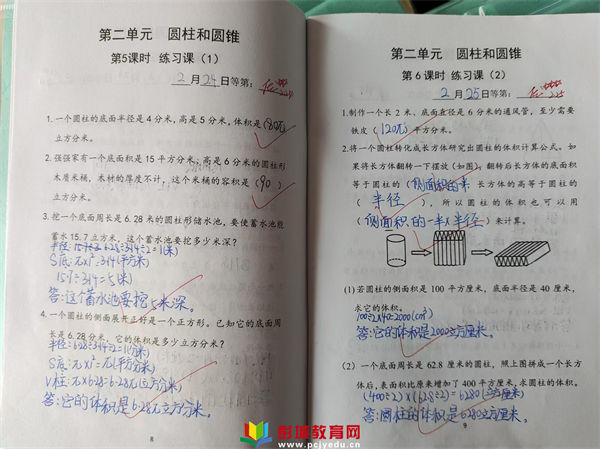 第二单元 圆柱和圆锥
第5课时 练习课（1）
2月24日等第：
1.一个圆柱的底面半径是4分米，高是5分米，体积是（80π）
立方分米。
2.强强家有一个底面积是15平方分米，高是6分米的圆柱形
木质米桶，木材的厚度不计，这个米桶的容积是（90）
立方分米。
3.挖一个底面周长是6.28米的圆柱形储水池，要使蓄水池能
蓄水15.7立方米，这个蓄水池要挖多少米深？
半径：6.28÷3.14÷2=1(米)
S底：π×1²=3.14(平方米)
15.7÷3.14=5(米)
答：这个蓄水池要挖5米深。
4.一个圆柱的侧面展开正好是一个正方形。已知它的底面周
长是6.28分米，它的体积是多少立方分米？
半径：6.28÷3.14÷2=1(分米)
S底：π×1²=π(平方分米)
V柱：π×6.28=6.28π(立方分米)
答：它的体积是6.28π立方分米。
8
第二单元 圆柱和圆锥
第6课时 练习课（2）
2月25日等第：
1.制作一个长2米、底面直径是6分米的通风管，至少需要
铁皮（120π）平方分米。
2.将一个圆柱转化成长方体研究出圆柱的体积计算公式。如
果将长方体翻转一下摆放（如图），翻转后长方体的底面积
等于圆柱的（侧面积的一半），长方体的高等于圆柱的
（半径），所以圆柱的体积也可以用
（侧面积的一半×半径）来计算。
(1)若圆柱的侧面积是100平方厘米，底面半径是40厘米，
求它的体积。
100÷2×40=2000(cm³)
答：它的体积是2000立方厘米。
(2)一个底面周长是62.8厘米的圆柱，照上图拼成一个长方
体后，表面积比原来增加了400平方厘米，求圆柱的体积。
(400÷2)×(62.8÷2)=6280(立方厘米)
答：圆柱的体积是6280立方厘米。
9
彭城教育网
www.pcjyedu.cn